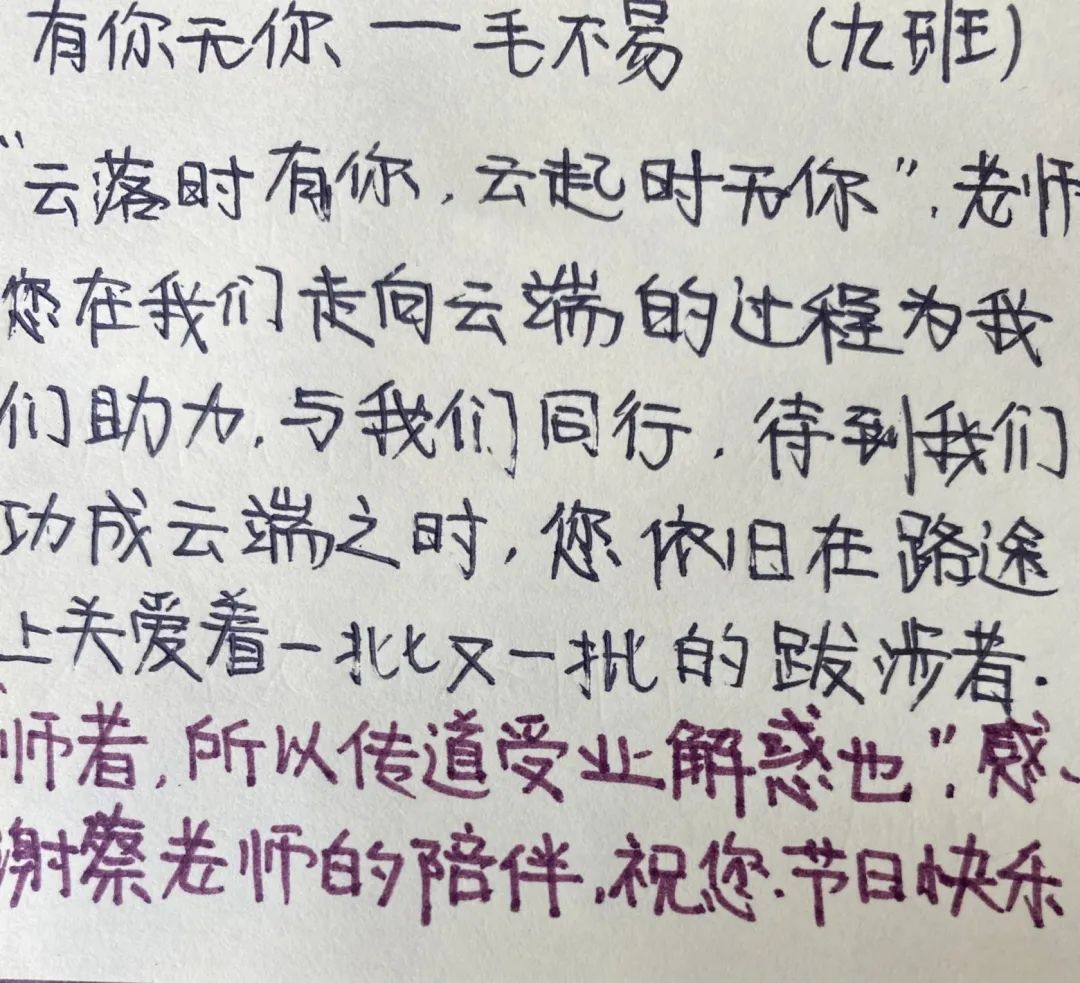 有你无你 一 毛不易 (九班)
“云落时有你,云起时无你”,老师
您在我们走向云端的过程为我
们助力,与我们同行,待到我们
功成云端之时,您依旧在路途
上关爱着一批又一批的跋涉者.
师者,所以传道受业解惑也”,感
谢蔡老师的陪伴,祝您.节日快乐